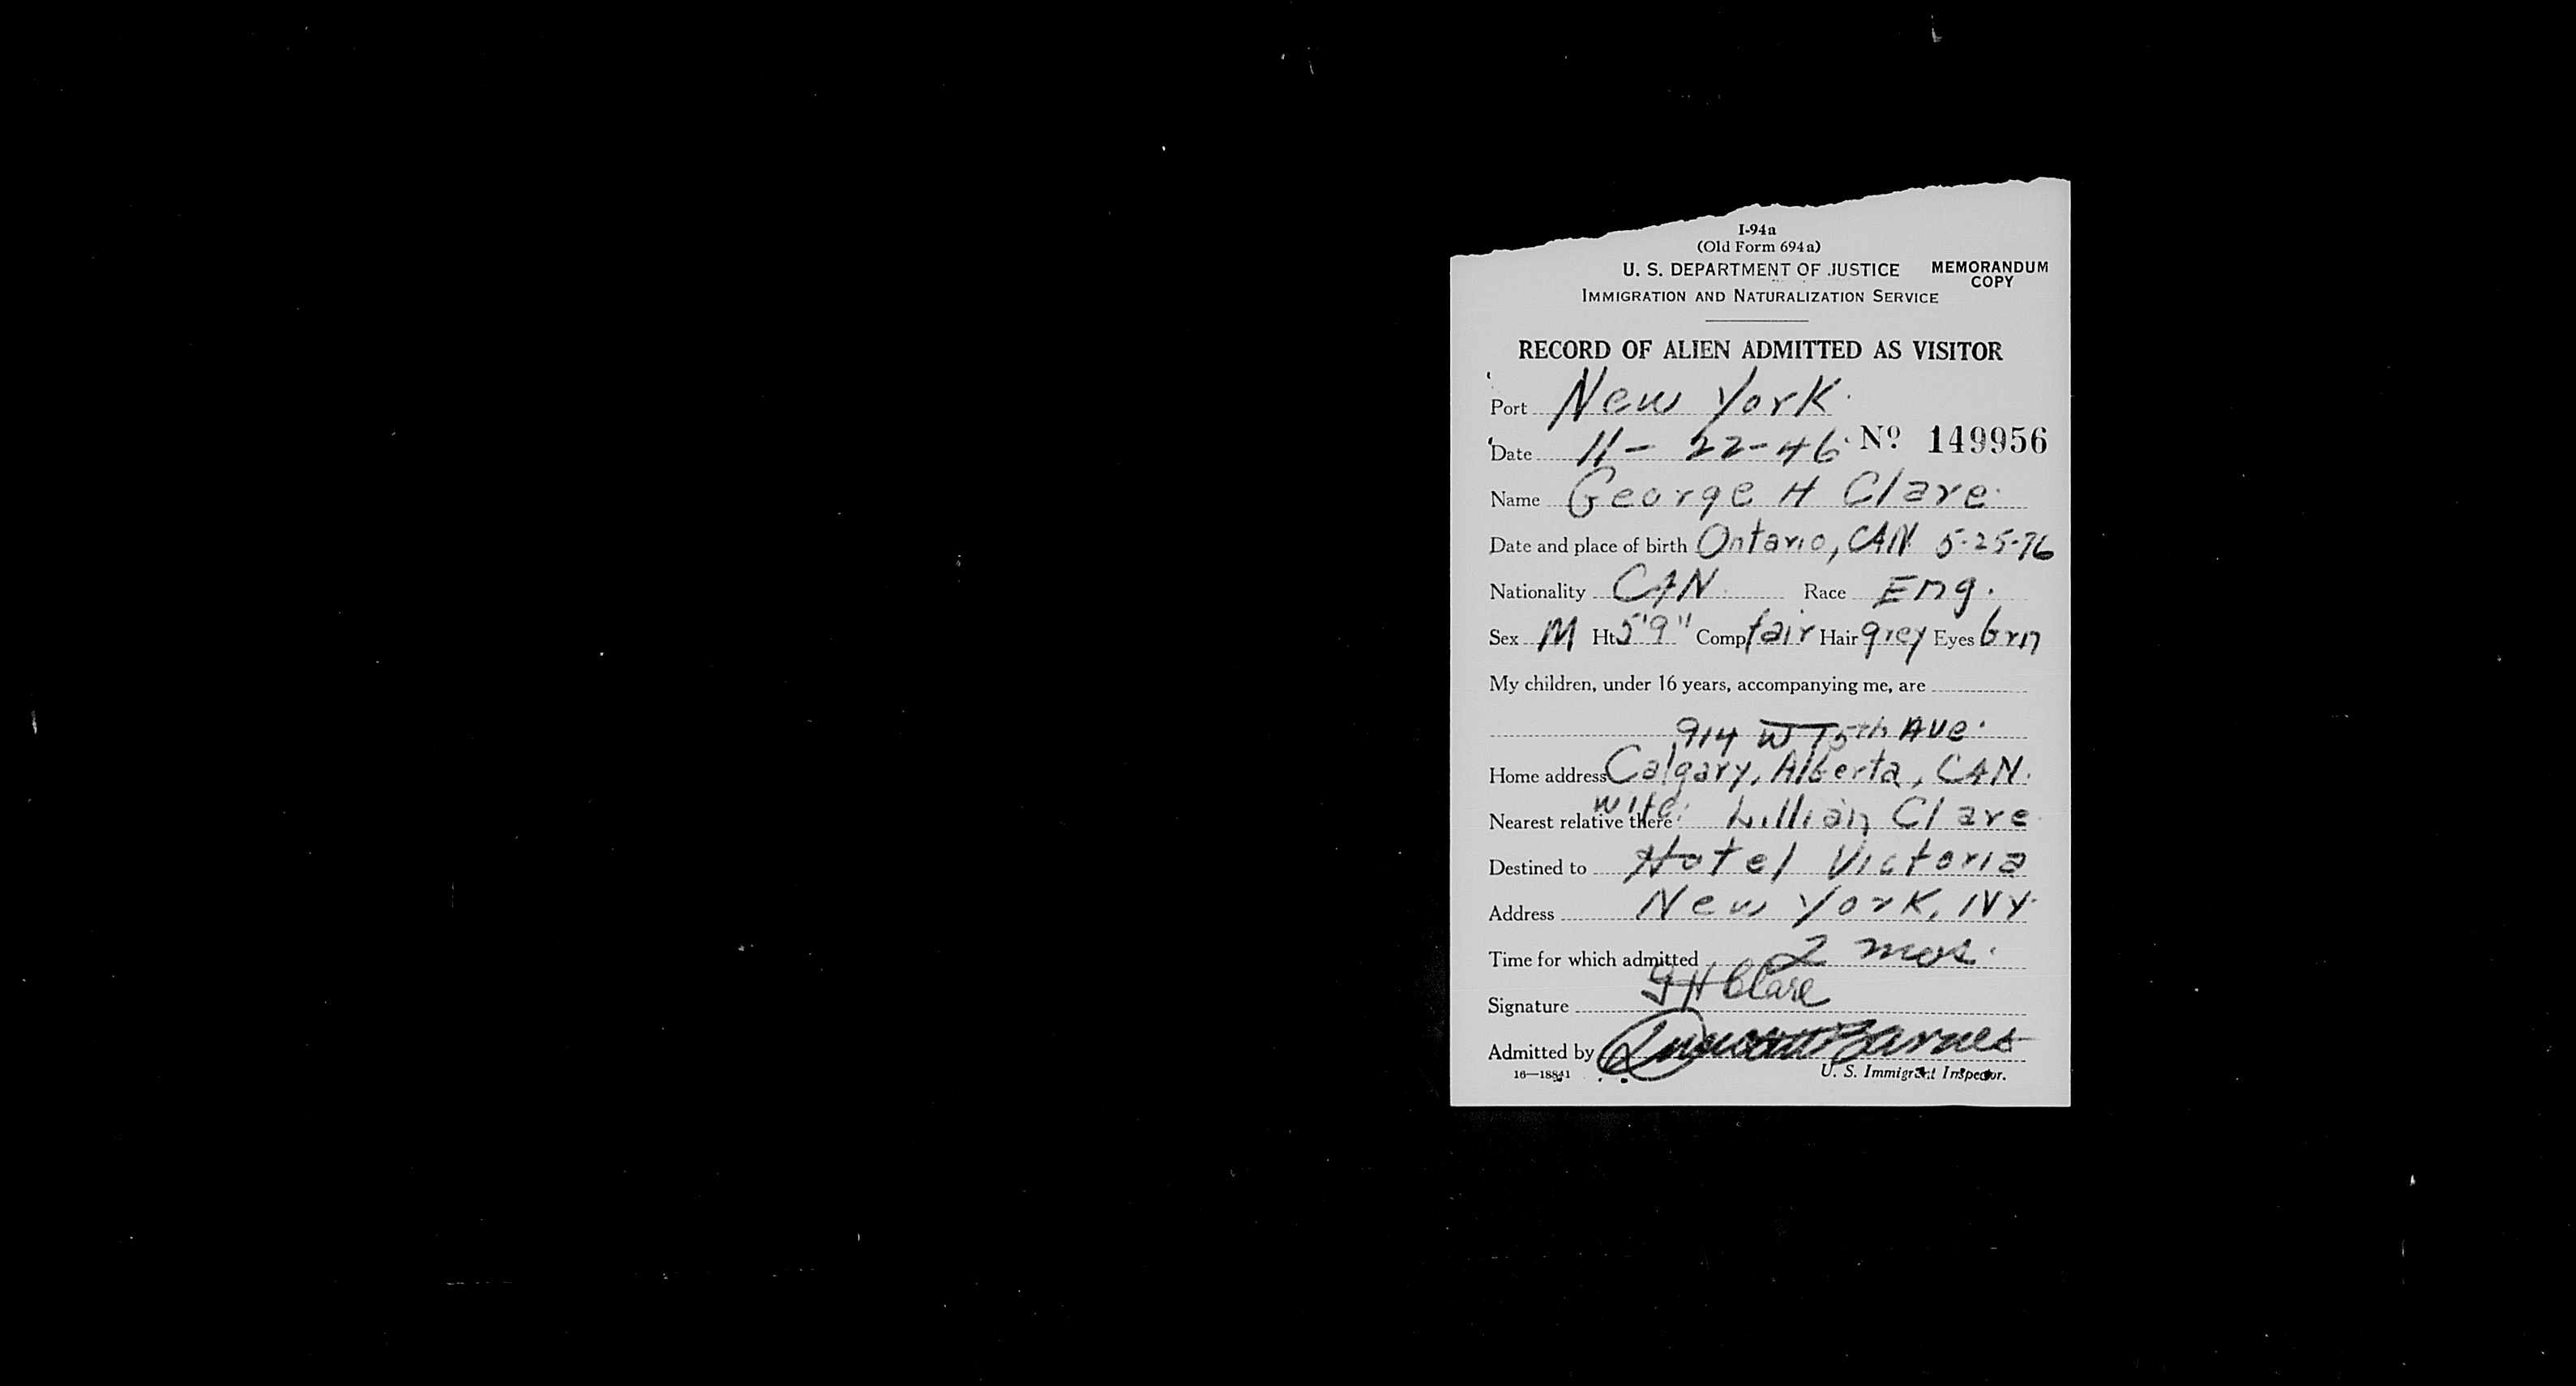 I-94a
(Old Form 694a)
U. S. DEPARTMENT OF JUSTICE MEMORANDUM COPY
IMMIGRATION AND NATURALIZATION SERVICE
RECORD OF ALIEN ADMITTED AS VISITOR
Port New York
Date 11-22-46 Nº 149956
Name George H Clare
Date and place of birth Ontario, CAN 5-25-76
Nationality CAN Race Eng.
Sex M Ht 5'9" Comp fair Hair grey Eyes brn
My children, under 16 years, accompanying me, are
914 W 15th Ave.
Home address Calgary, Alberta, CAN.
Nearest relative there wife: Lillian Clare
Destined to Hotel Victoria
Address New York, NY.
Time for which admitted 2 mos.
Signature G H Clare
Admitted by Barnes
16—18841 U. S. Immigrant Inspector.